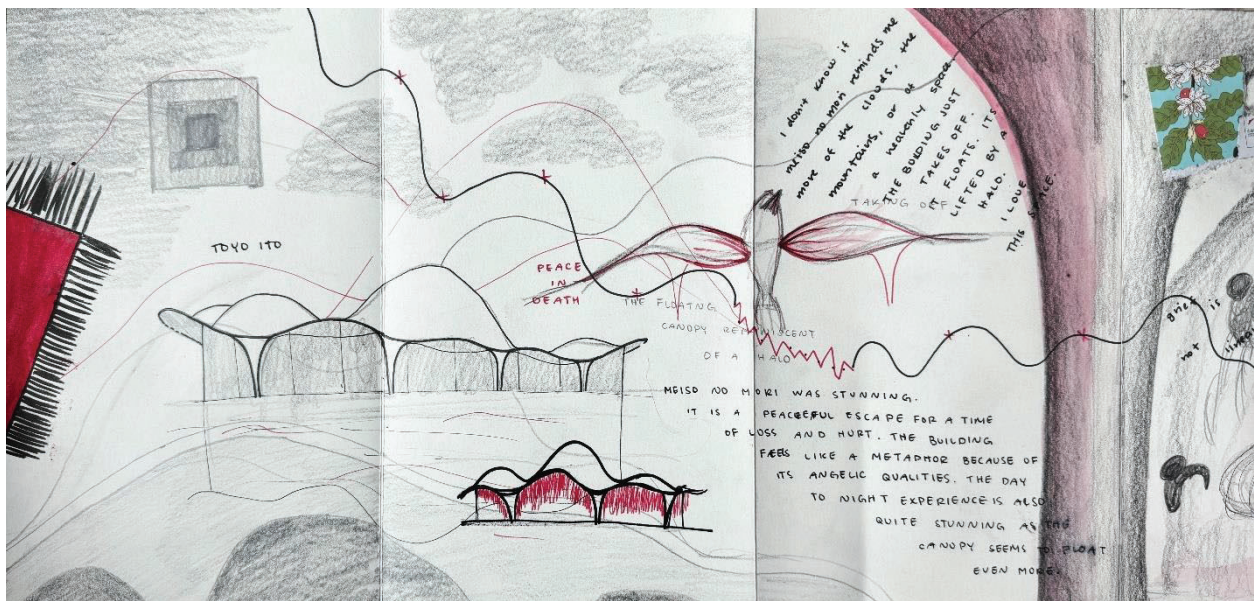 TOYO ITO
PEACE
IN
DEATH
I don't know if
meiso no mori reminds me
more of the clouds, the
mountains, or of
a heavenly space
THE BULDING JUST
IT TAKES OFF.
IT FLOATS. ITS
LIFTED BY A
HALO.
I LOVE
THIS SPACE.
TAKING OFF
THE FLOATNG
CANOPY REMINISCENT
OF A HALO
MEISO NO MORI WAS STUNNING.
IT IS A PEACEFUL ESCAPE FOR A TIME
OF LOSS AND HURT. THE BUILDING
FEELS LIKE A METAPHOR BECAUSE OF
ITS ANGELIC QUALITIES. THE DAY
TO NIGHT EXPERIENCE IS ALSO
QUITE STUNNING AS THE
CANOPY SEEMS TO FLOAT
EVEN MORE.
grief is
not linear